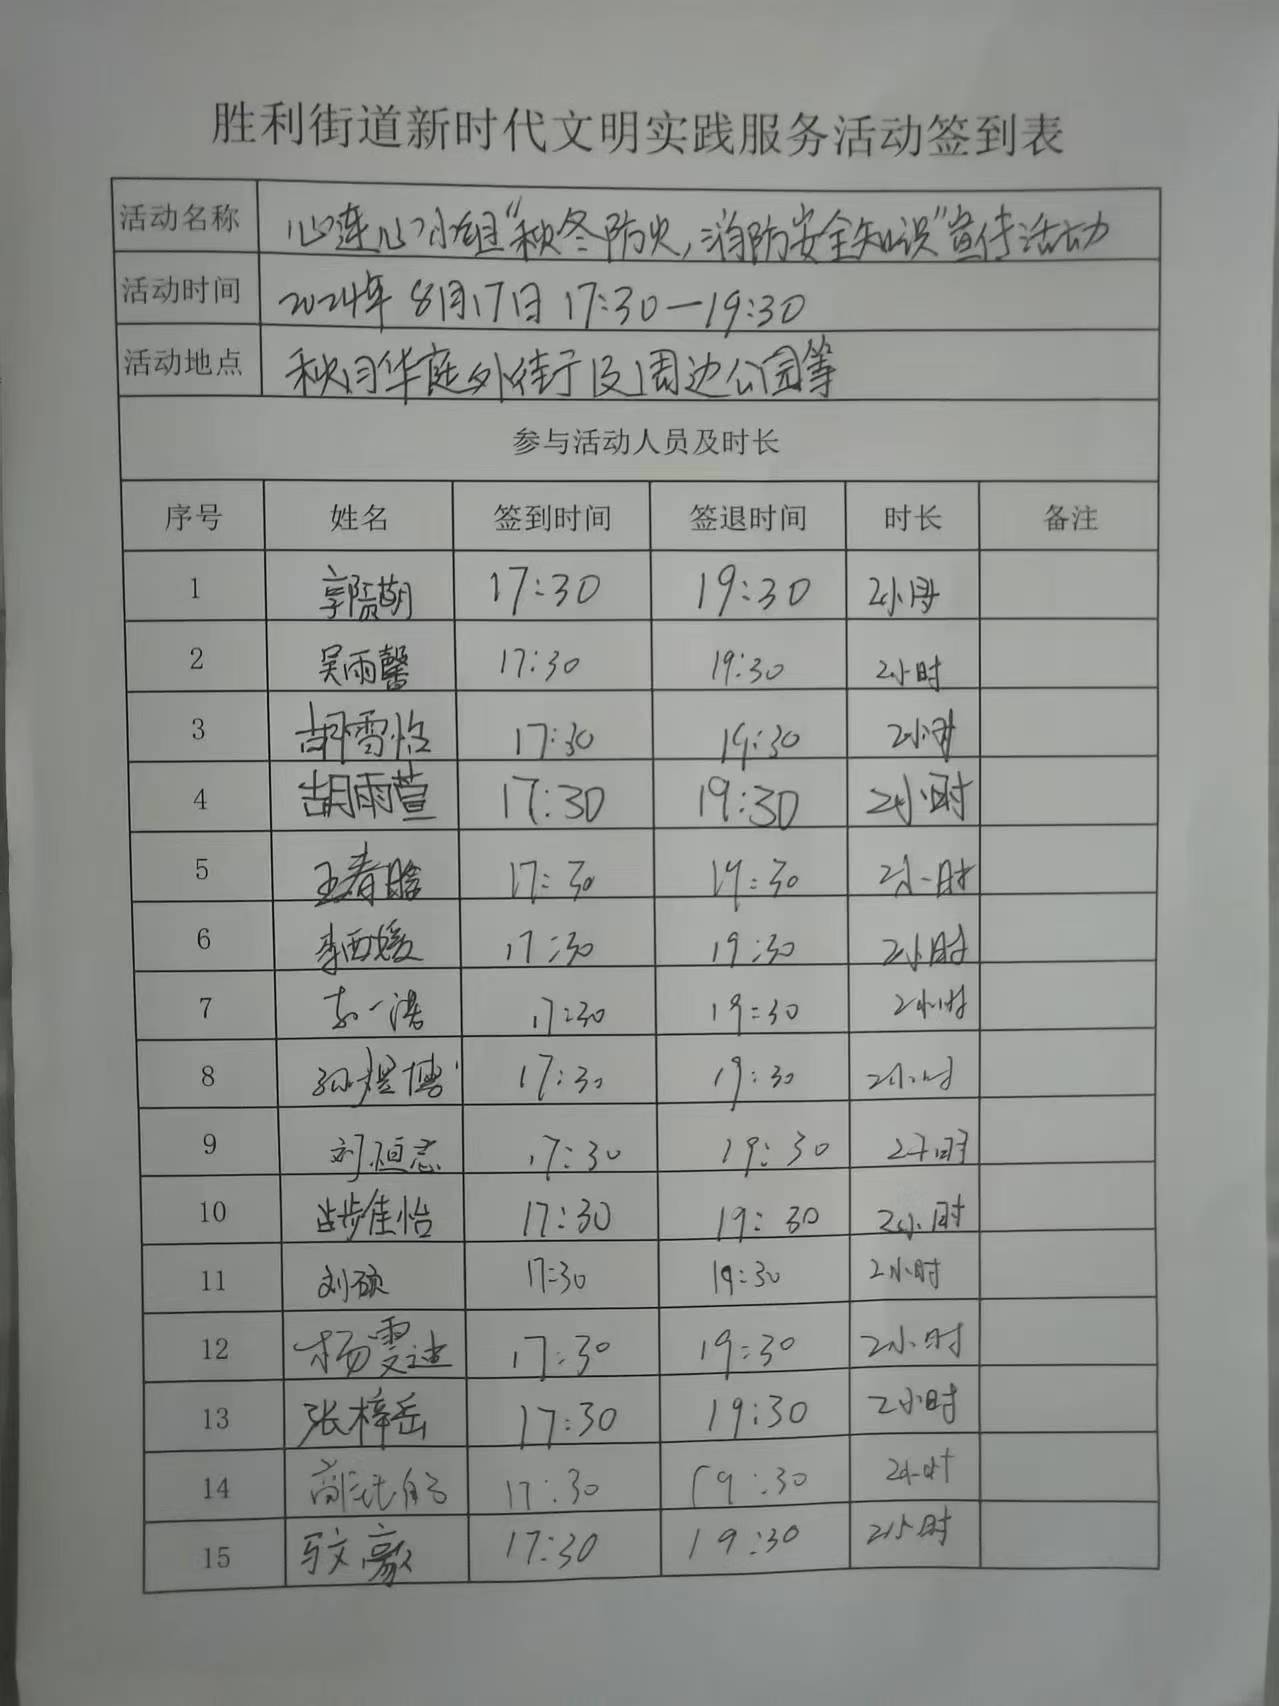 胜利街道新时代文明实践服务活动签到表
活动名称 心连心小组“秋冬防火,消防安全知识”宣传活动
活动时间 2024年8月17日 17:30—19:30
活动地点 秋月华庭外街于及周边公园等
参与活动人员及时长
序号 姓名 签到时间 签退时间 时长 备注
1 17:30 19:30 2小时
2 吴雨馨 17:30 19:30 2小时
3 胡雪怡 17:30 19:30 2小时
4 胡雨萱 17:30 19:30 2小时
5 王春晗 17:30 19:30 2小时
6 李西媛 17:30 19:30 2小时
7 17:30 19:30 2小时
8 孙煜博 17:30 19:30 2小时
9 刘恒志 17:30 19:30 2小时
10 17:30 19:30 2小时
11 刘硕 17:30 19:30 2小时
12 杨雯迪 17:30 19:30 2小时
13 张梓岳 17:30 19:30 2小时
14 17:30 19:30 2小时
15 17:30 19:30 2小时